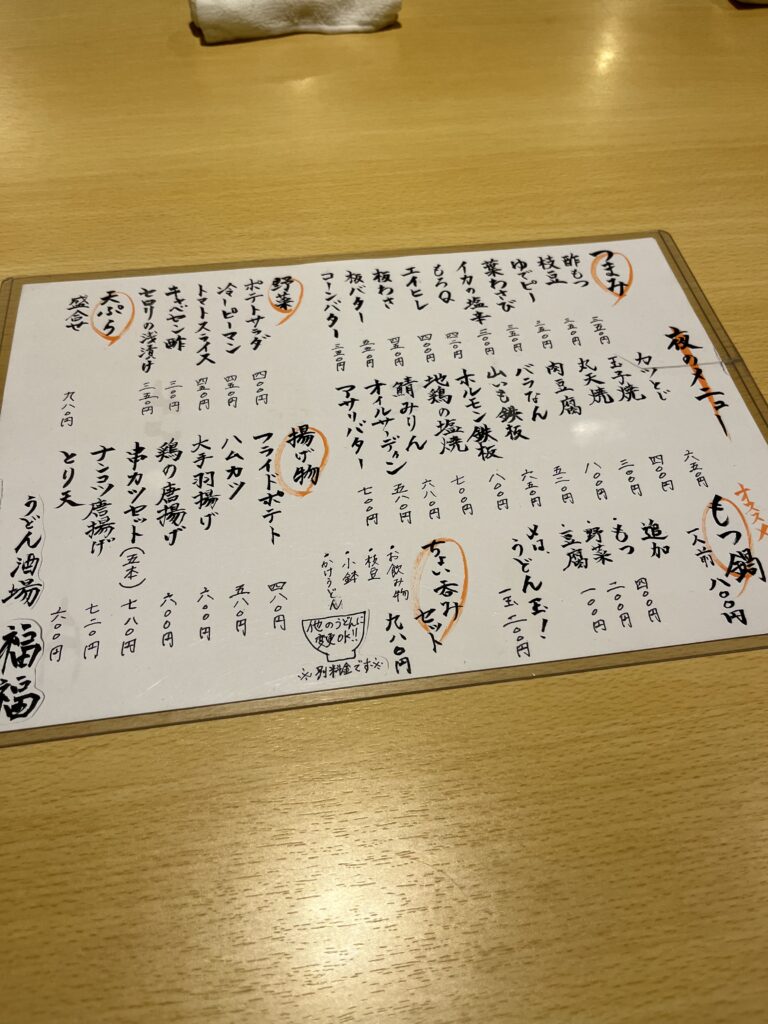 夜のメニュー
つまみ
酢もつ 三五〇円
枝豆 三五〇円
ゆでピー 三五〇円
葉わさび 三五〇円
イカの塩辛 三〇〇円
もろQ 四二〇円
エイヒレ 四〇〇円
板わさ 四五〇円
板バター 五五〇円
コーンバター 三五〇円
カツとじ 六五〇円
玉子焼 四〇〇円
丸天焼 三〇〇円
肉豆腐 八〇〇円
バラなん 五二〇円
山いも鉄板 六五〇円
ホルモン鉄板 八〇〇円
地鶏の塩焼 七〇〇円
鯖みりん 六八〇円
オイルサーディン 五八〇円
アサリバター 七〇〇円
オススメ
もつ鍋
一人前 八〇〇円
追加 四〇〇円
・もつ 二〇〇円
・野菜 一〇〇円
・豆腐
〆は、うどん玉!
一玉 二〇〇円
ちょい呑みセット
九八〇円
・お飲み物
・枝豆
・小鉢
・かけうどん
他のうどんに
変更OK!!
※別料金です※
野菜
ポテトサラダ 四〇〇円
冷しピーマン 四五〇円
トマトスライス 四五〇円
キャベヤン酢 三〇〇円
セロリの浅漬け 三五〇円
天ぷら
盛合せ 九八〇円
揚げ物
フライドポテト 四八〇円
ハムカツ 五八〇円
大手羽揚げ 六〇〇円
鶏の唐揚げ 六〇〇円
串カツセット(五本) 七八〇円
ナンコツ唐揚げ 七二〇円
とり天 六〇〇円
うどん酒場 福福